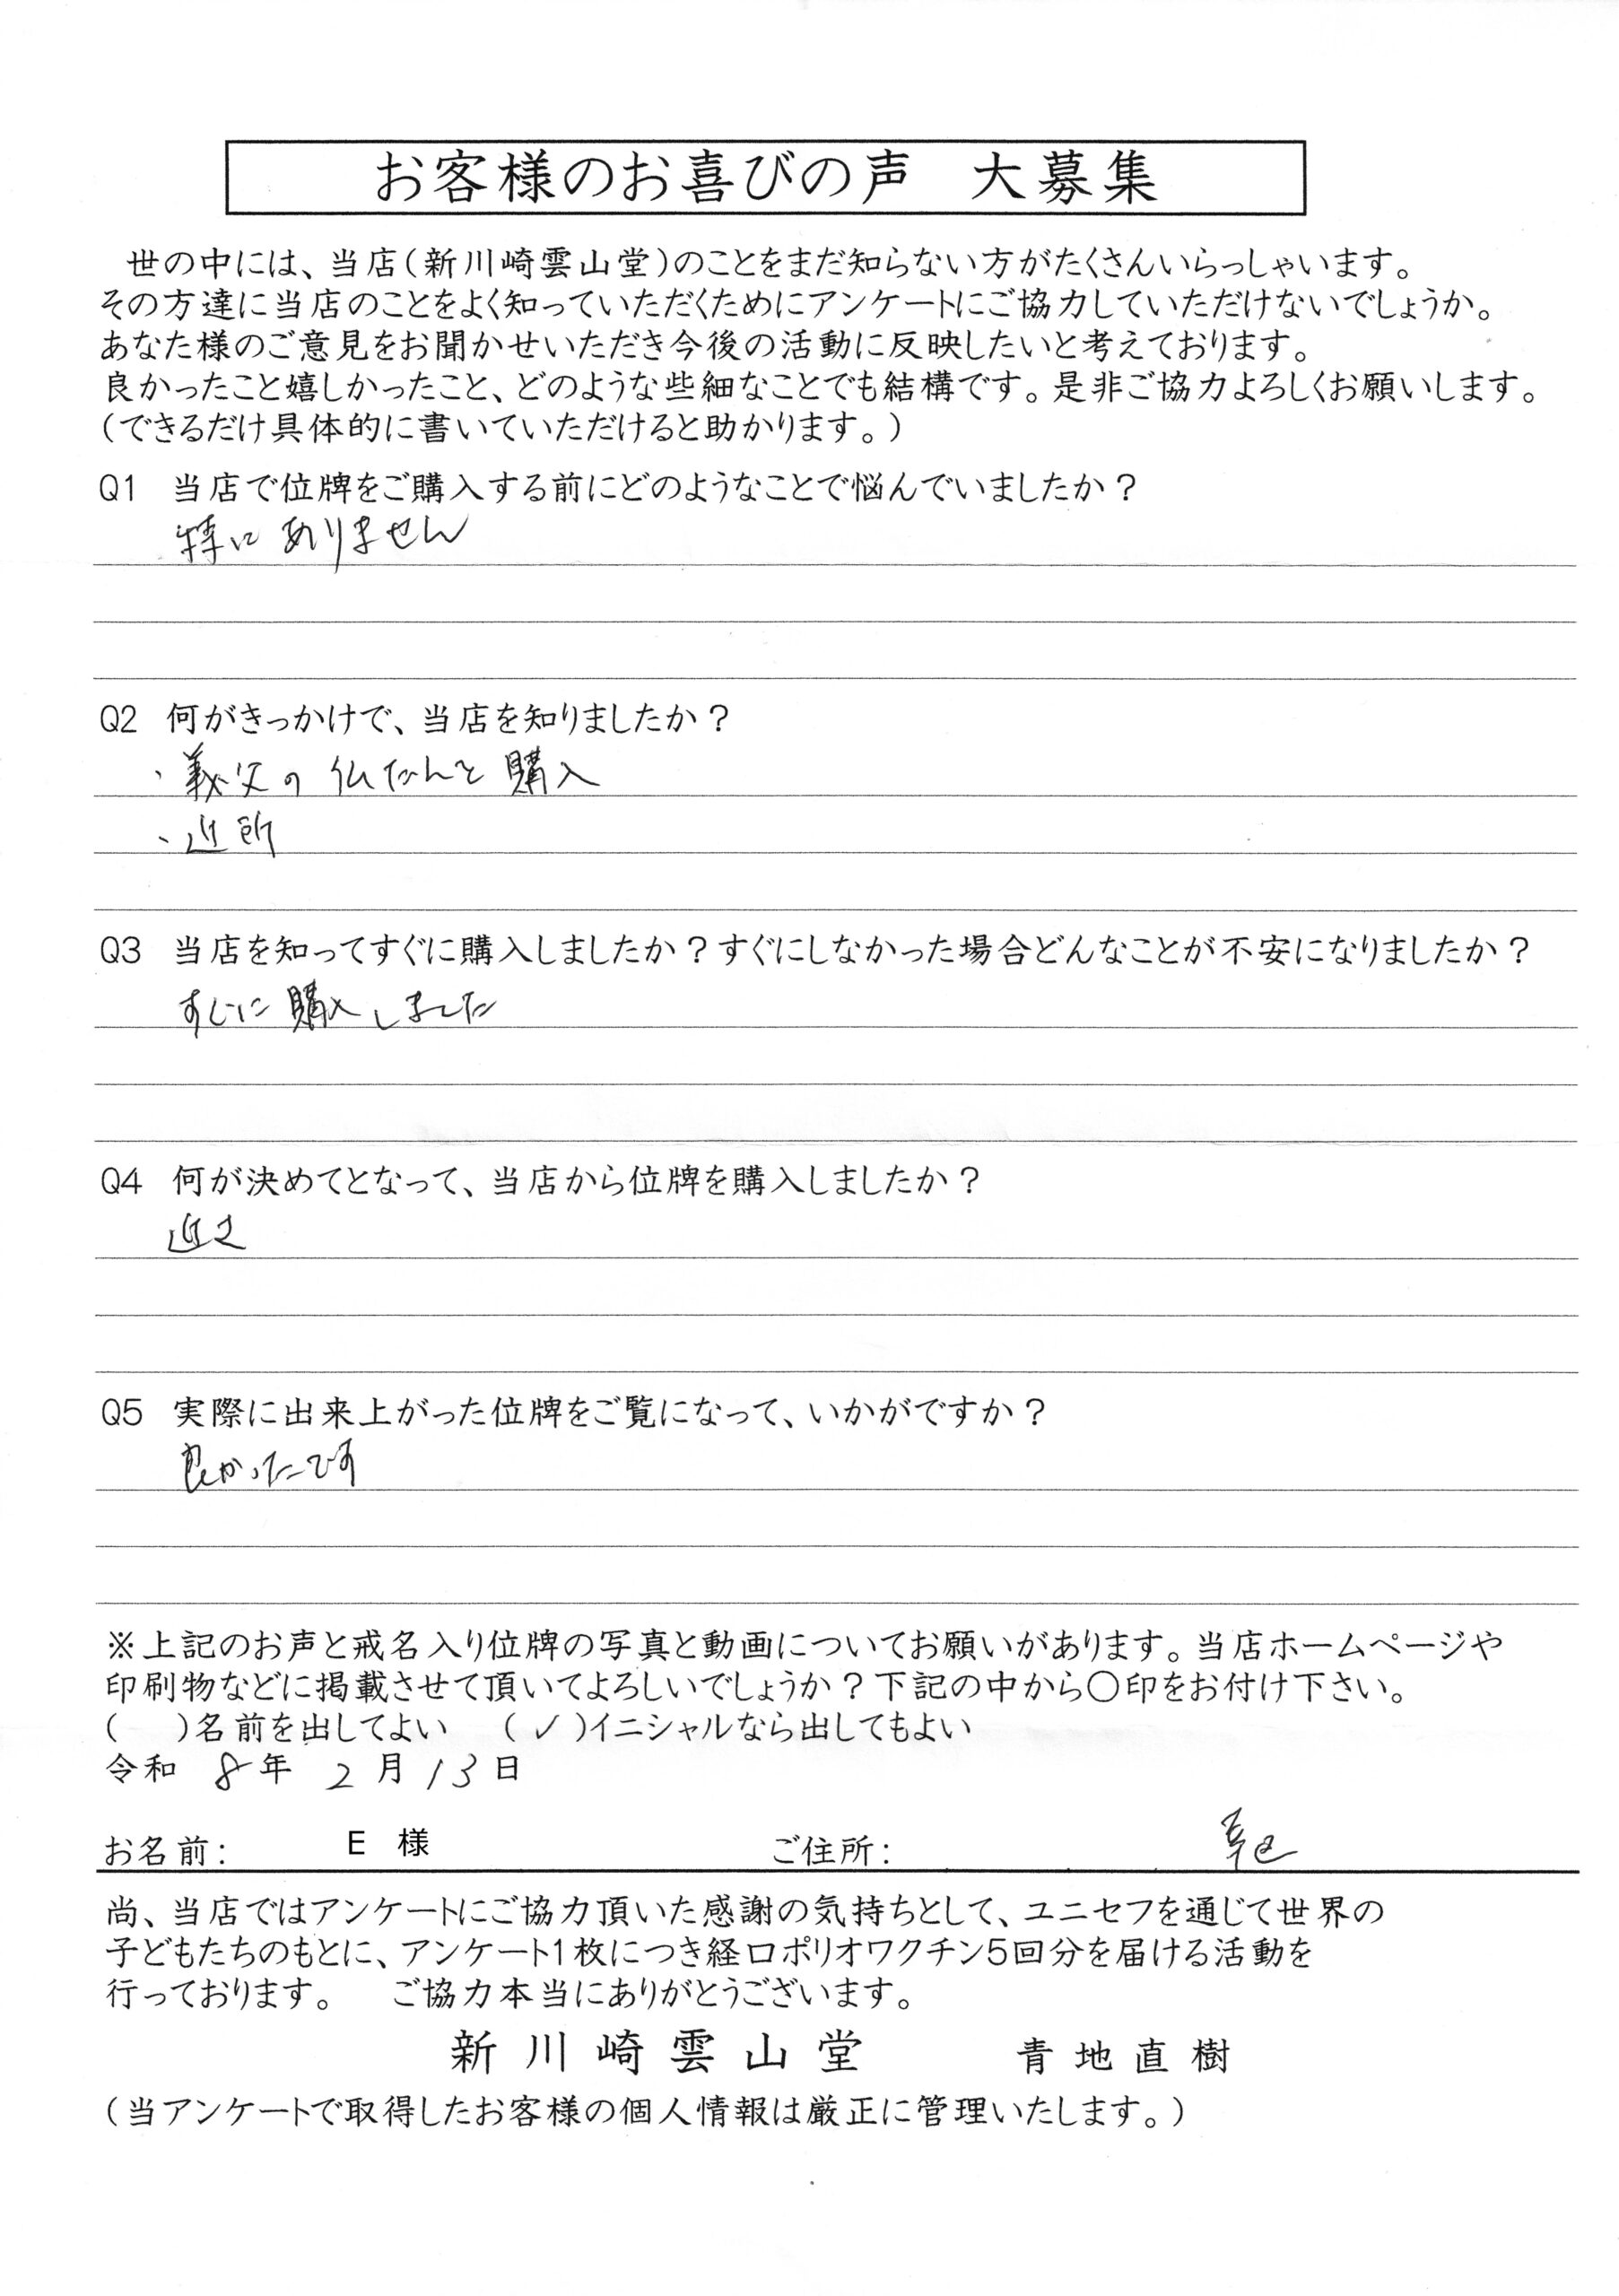 お客様のお喜びの声　大募集
世の中には、当店（新川崎雲山堂）のことをまだ知らない方がたくさんいらっしゃいます。
その方達に当店のことをよく知っていただくためにアンケートにご協力していただけないでしょうか。
あなた様のご意見をお聞かせいただき今後の活動に反映したいと考えております。
良かったこと嬉しかったこと、どのような些細なことでも結構です。是非ご協力よろしくお願いします。
（できるだけ具体的に書いていただけると助かります。）
Q1　当店で位牌をご購入する前にどのようなことで悩んでいましたか？
特に ありません
Q2　何がきっかけで、当店を知りましたか？
・義父の 仏だんを 購入
・近所
Q3　当店を知ってすぐに購入しましたか？すぐにしなかった場合どんなことが不安になりましたか？
すぐに 購入しました
Q4　何が決めてとなって、当店から位牌を購入しましたか？
近さ
Q5　実際に出来上がった位牌をご覧になって、いかがですか？
良かったです
※上記のお声と戒名入り位牌の写真と動画についてお願いがあります。当店ホームページや
印刷物などに掲載させて頂いてよろしいでしょうか？下記の中から〇印をお付け下さい。
（　　）名前を出してよい　（ ✓ ）イニシャルなら出してもよい
令和 8年 2月 13日
お名前： E 様　ご住所： 幸区
尚、当店ではアンケートにご協力頂いた感謝の気持ちとして、ユニセフを通じて世界の
子どもたちのもとに、アンケート1枚につき経口ポリオワクチン5回分を届ける活動を
行っております。　ご協力本当にありがとうございます。
新川崎雲山堂　青地直樹
（当アンケートで取得したお客様の個人情報は厳正に管理いたします。）